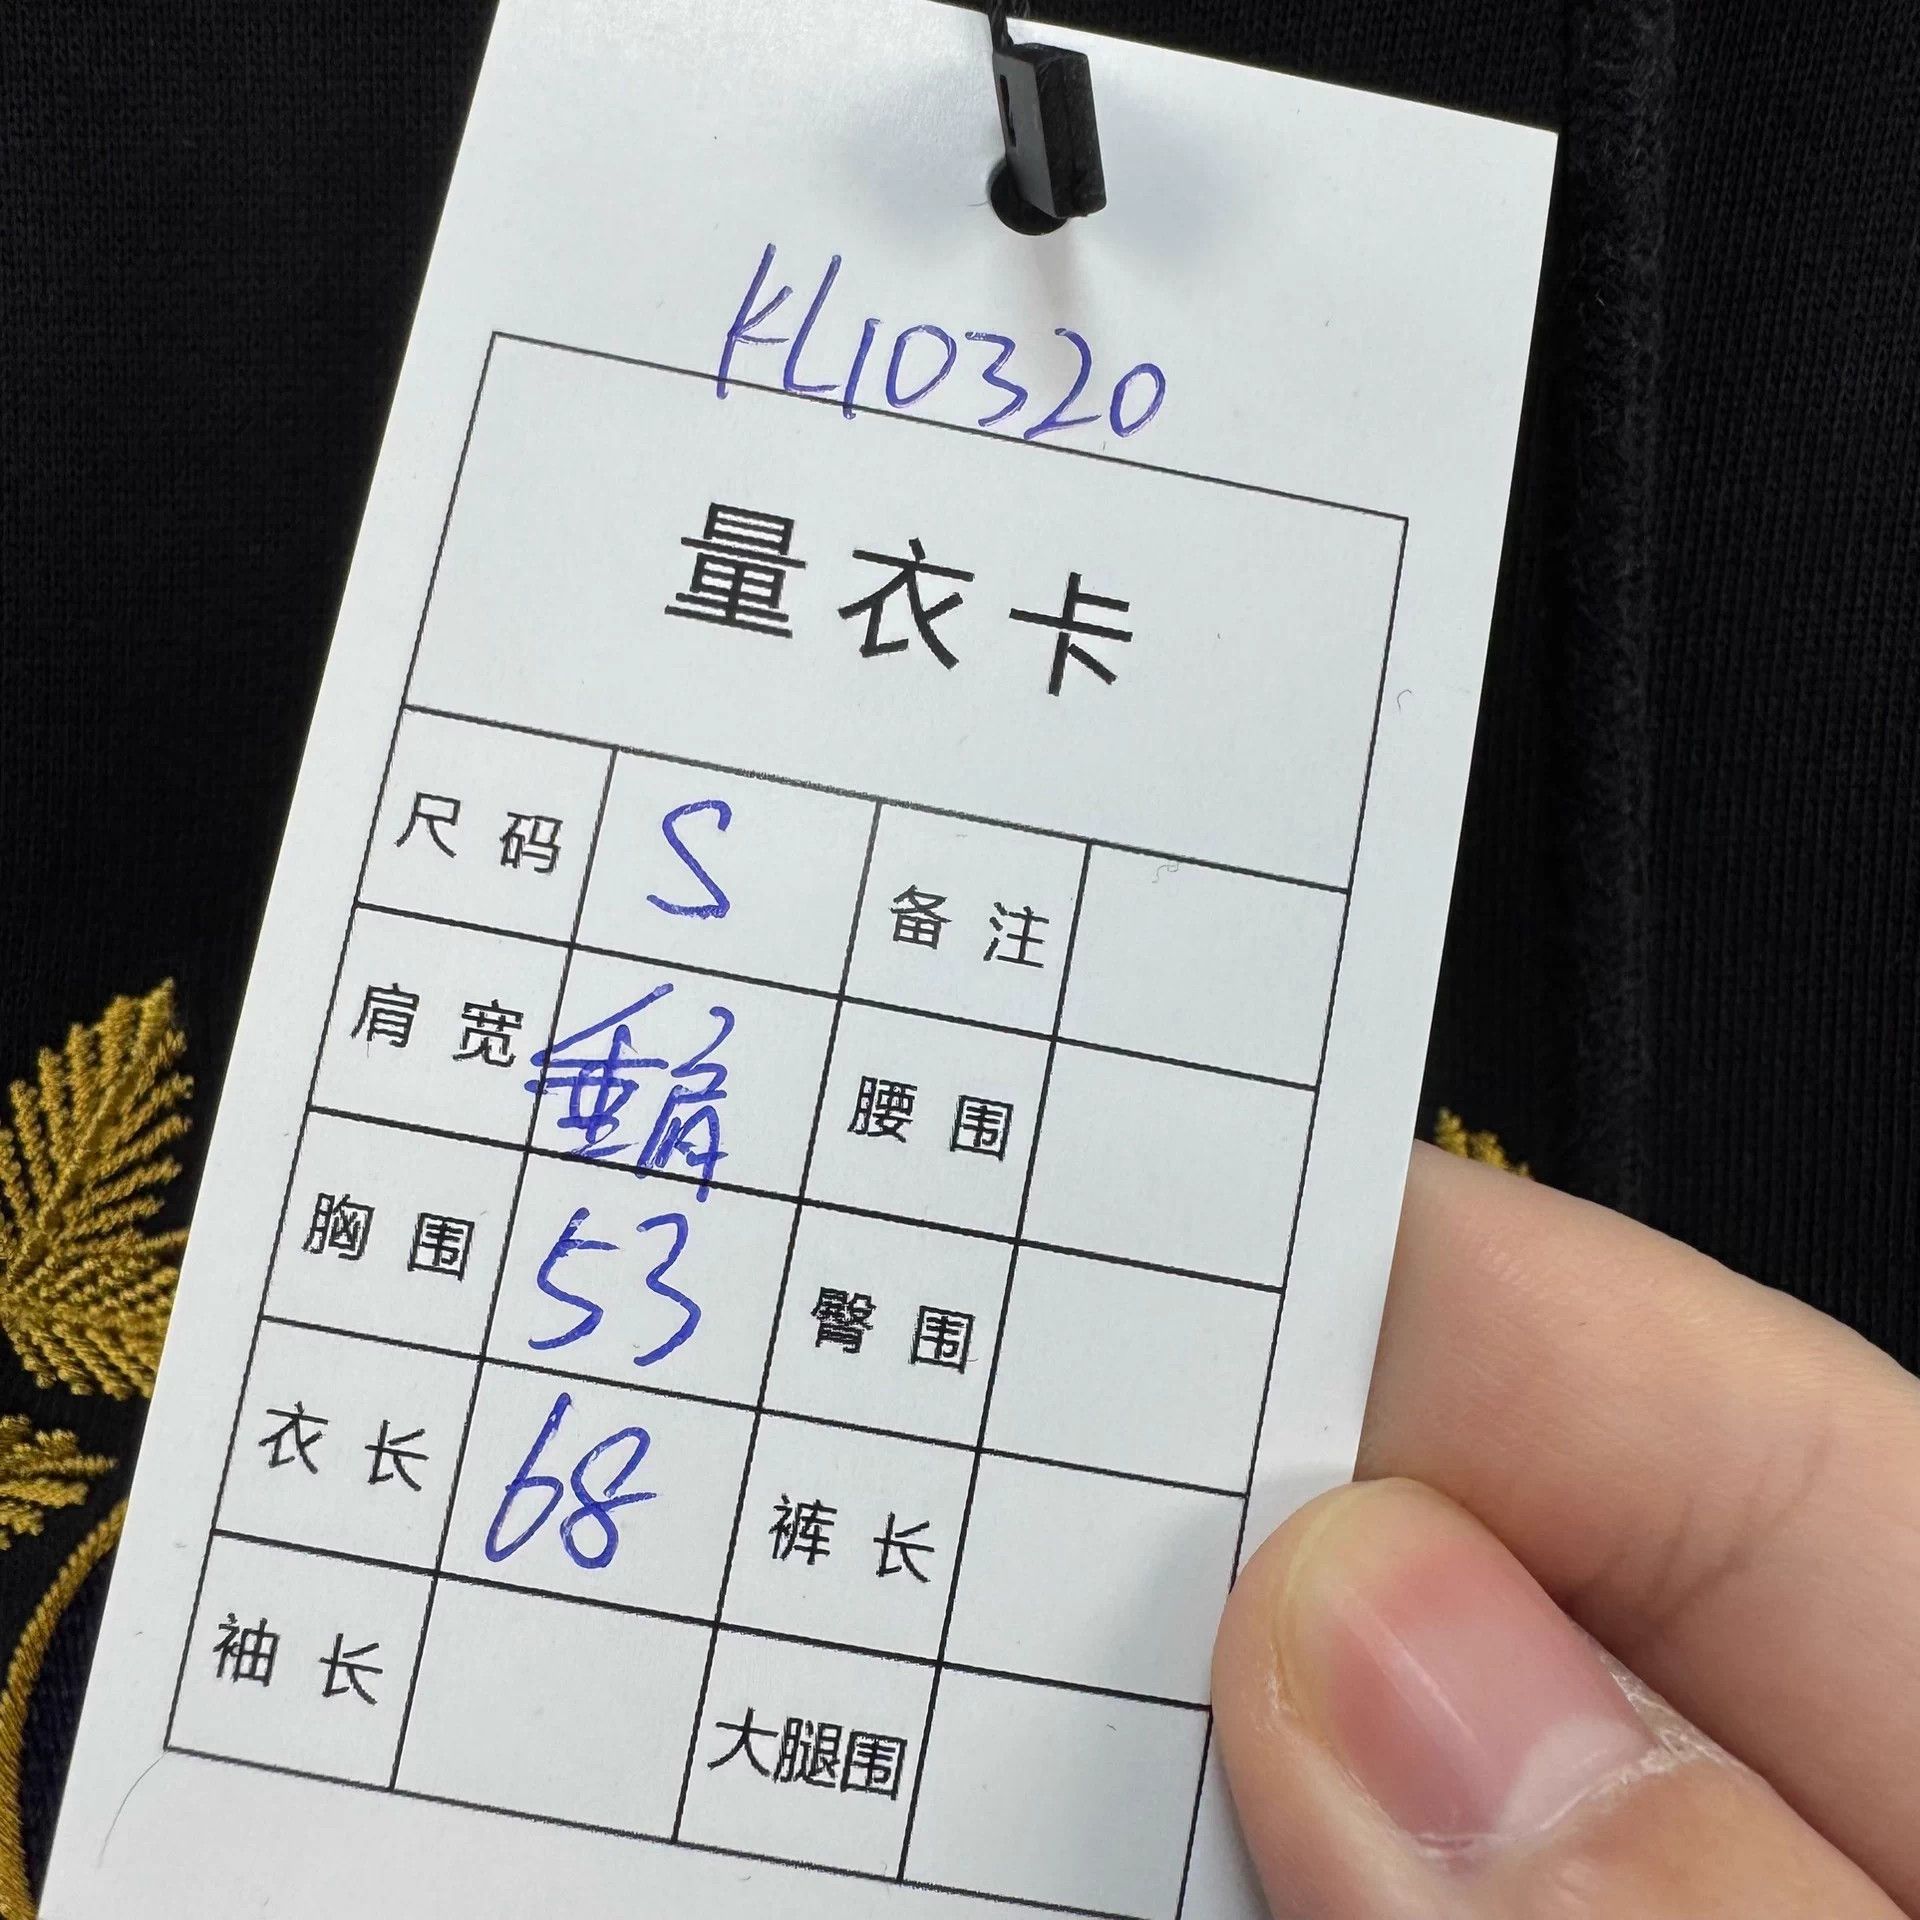 KL10320
量衣卡
尺码 S 备注
肩宽 垂肩 腰围
胸围 53 臀围
衣长 68 裤长
袖长 大腿围